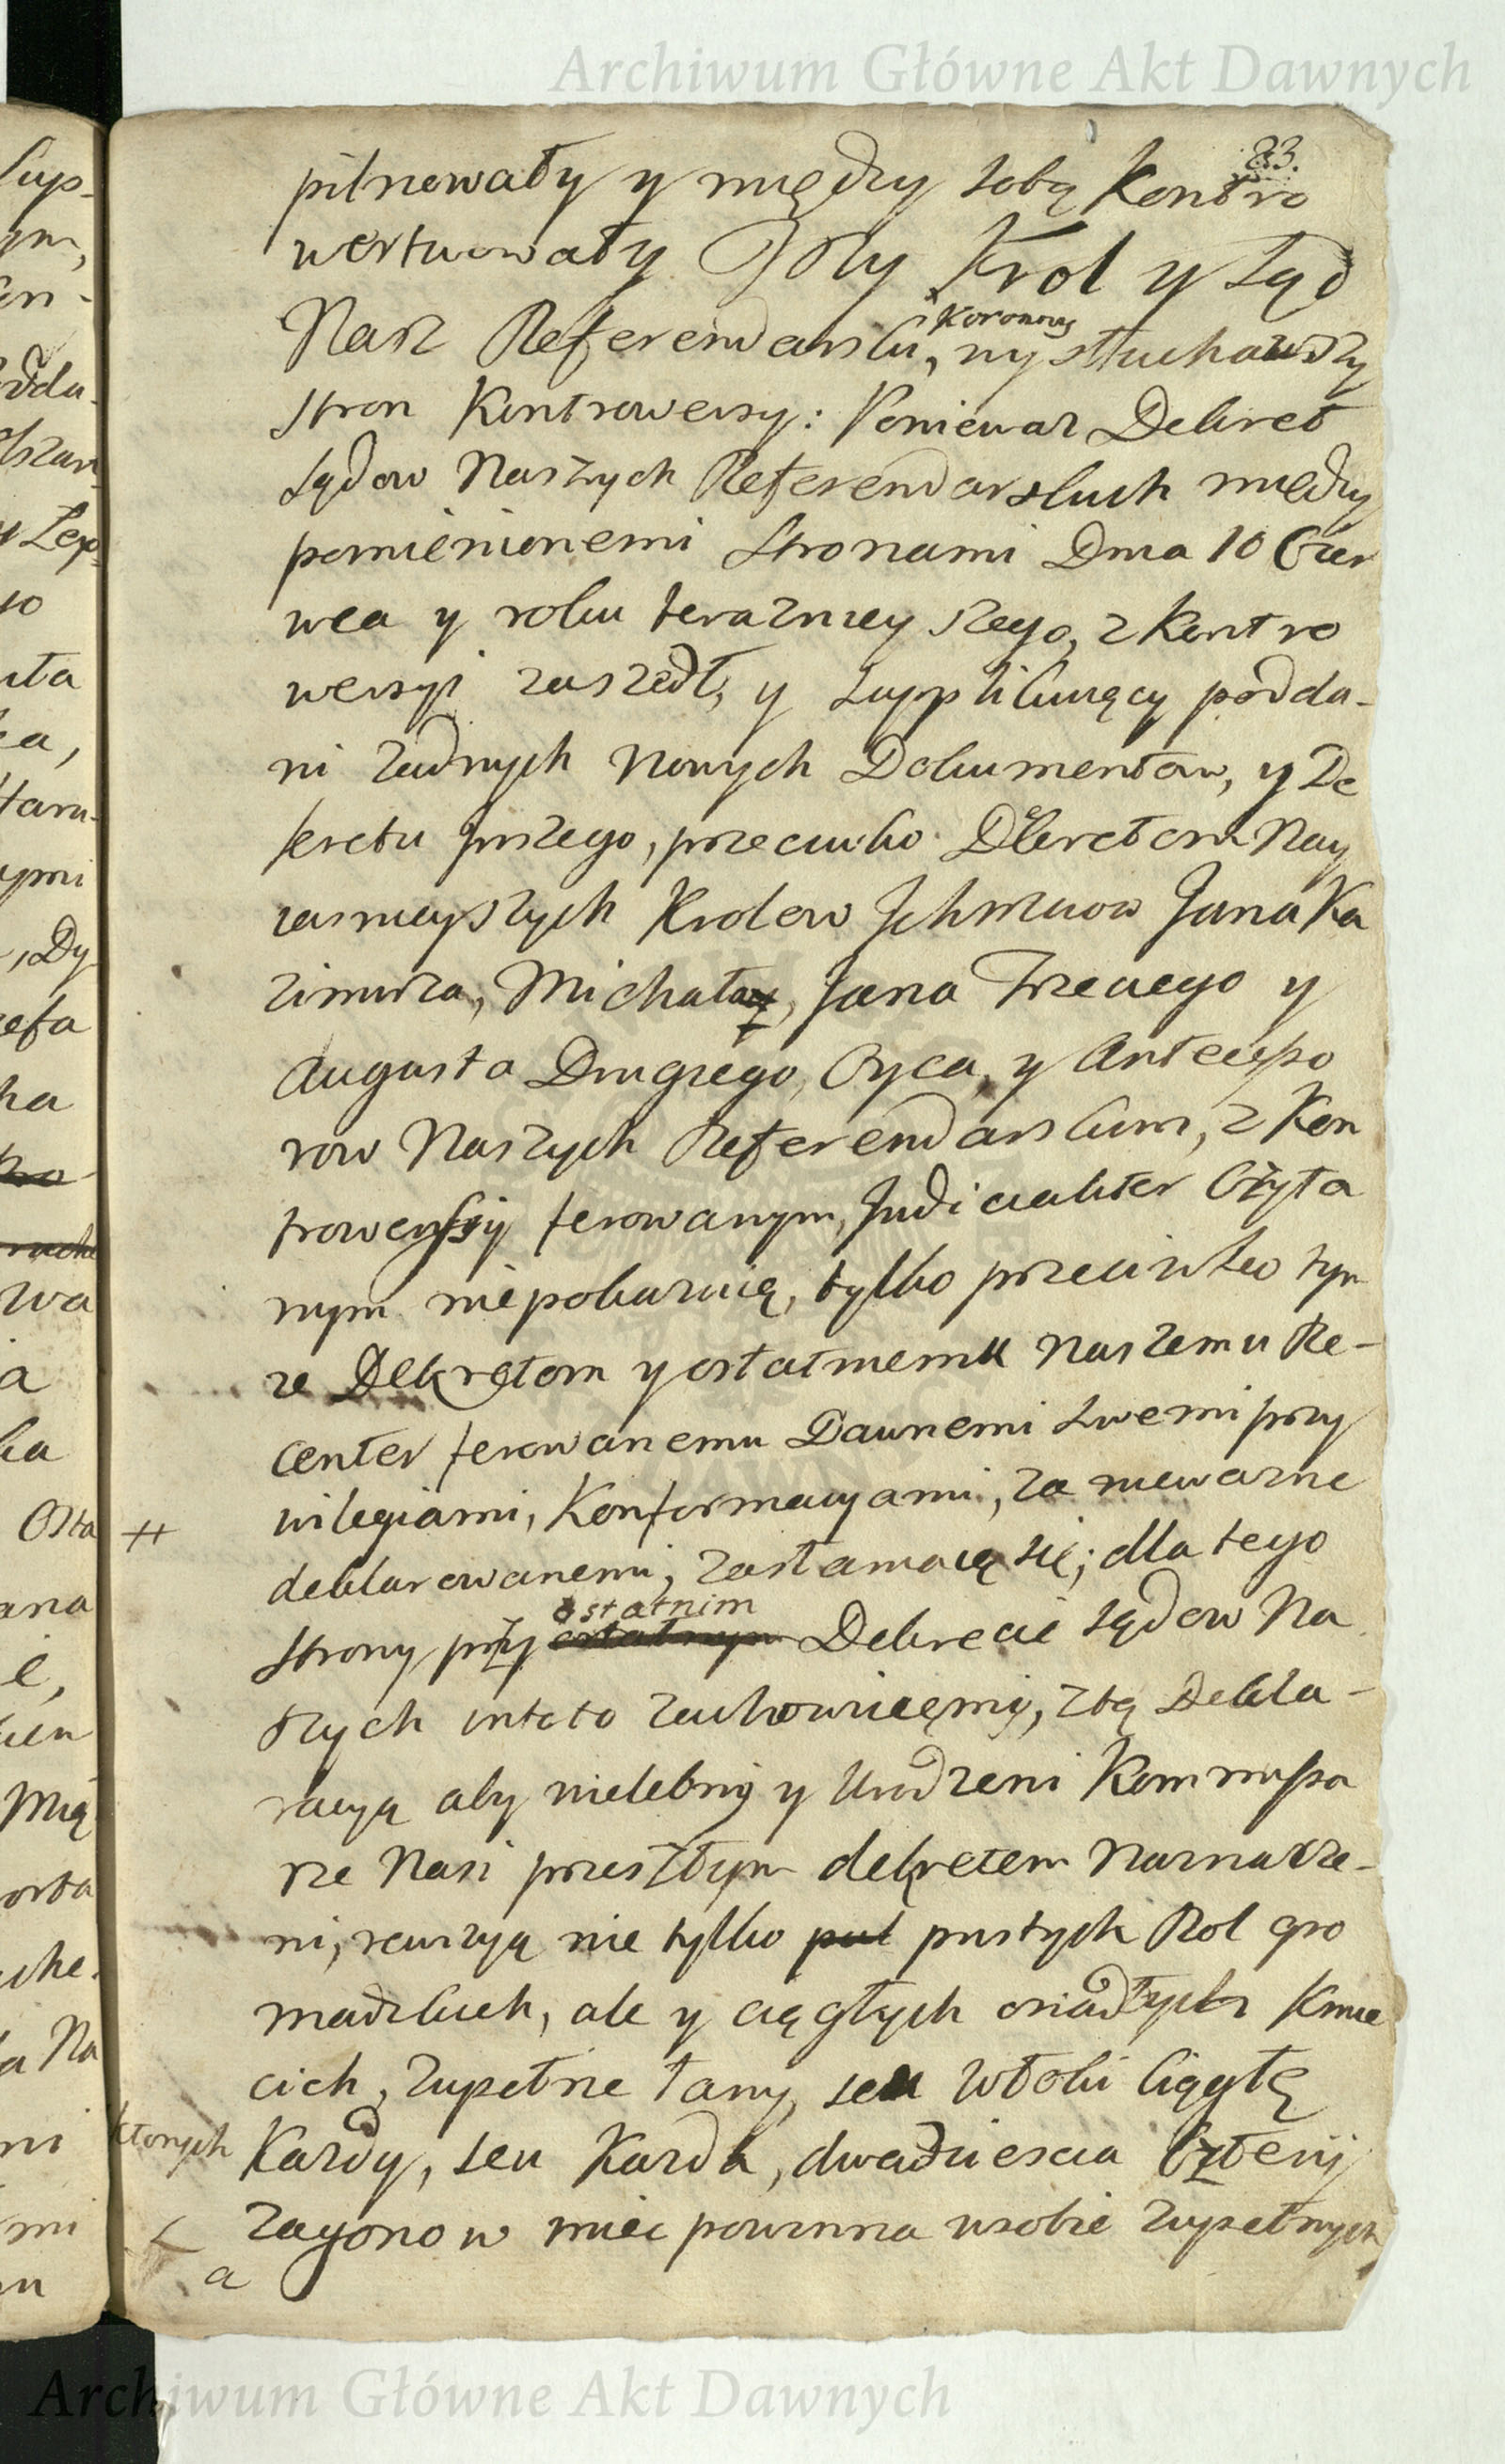 Archiwum Główne Akt Dawnych
83.
pilnowały y między sobą Kontro
wertuowały My Krol y Sąd
Nasz Referendarski, Koronny wysłuchawszy
stron Kontrowersy: Poniewaz Dekret
Sądow Naszych Referendarskich między
pomienionemi Stronami Dnia 10 Czer
wca y roku teraznieyszego, z Kontro
wersyi zaszedł, y Supplikuiący podda-
ni zadnych Nowych Dokumentow, y De
kretu inszego, przeciwko Dekretom Nay
iasnieyszych Krolow Ichmciow Jana Ka
zimirza, Michała, Jana Trzeciego y
Augusta Drugiego, Oyca, y Anteceso
row Naszych Referendarskim, z Kon
trowersyi ferowanym, Judicialiter Czyta
nym niepokazuią, tylko przeciwko tym
ze Dekretom y ostatniemu Naszemu Re-
center ferowanemu Dawnemi Swemi przy
wilegiami, Konformacyami, za niewazne
deklarowanemi, zasłaniaią się; dla tego
ostatnim
Strony przy ostatnym Dekrecie Sądow Na
szych intoto zachowuięmy, z tą Dekla-
racyą aby wielebny y Urodzeni Kommissa
rze Nasi przeszłym dekretem Naznacze-
ni, rewizyą nie tylko pul pustych Rol gro
madzkich, ale y ciągłych osiadłych Kmie
cich, zupełne łany, seu Włoki Ciągłę
ktorych Kazdy, seu Kazda, dwadziescia Cztery
Zagonow miec powinna wsobie zupełnych
a
Archiwum Główne Akt Dawnych